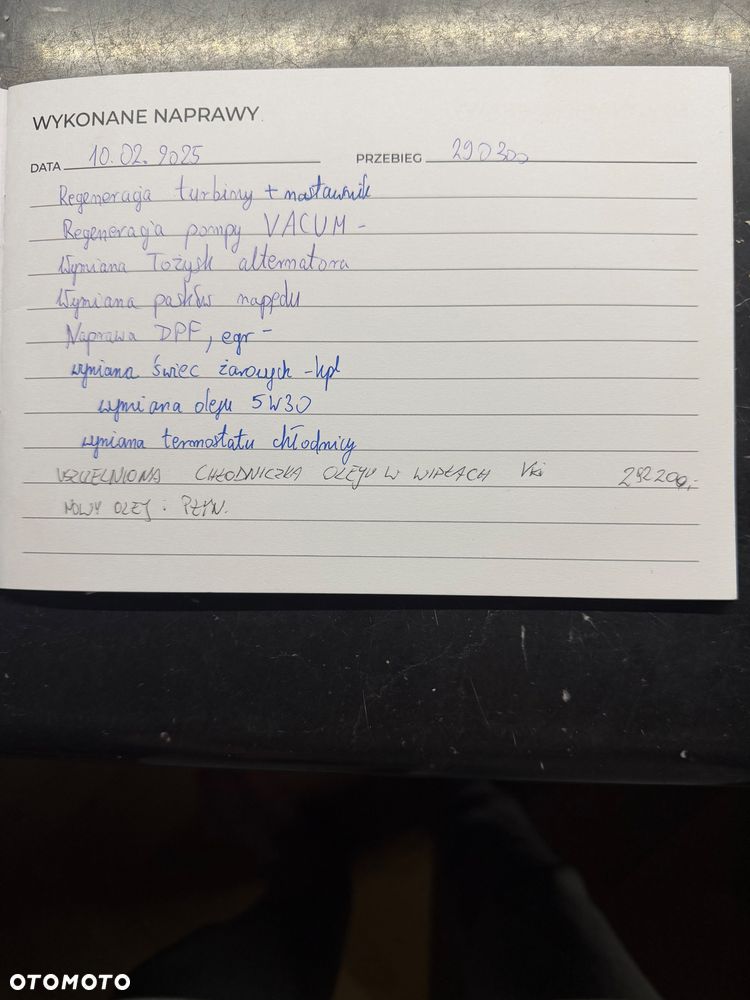 WYKONANE NAPRAWY
DATA 10.02.2025 PRZEBIEG 290300
Regeneracja turbiny + nastawnik
Regeneracja pompy VACUM -
Wymiana Tożysk alternatora
Wymiana pasków napędu
Naprawa DPF, egr -
wymiana świec żarowych - kpl
wymiana oleju 5W30
wymiana termostatu chłodnicy
USZCZELNIONA CHŁODNICZKA OLEJU W WIDŁACH 292200,-
NOWY OLEJ i PŁYN.
OTOMOTO